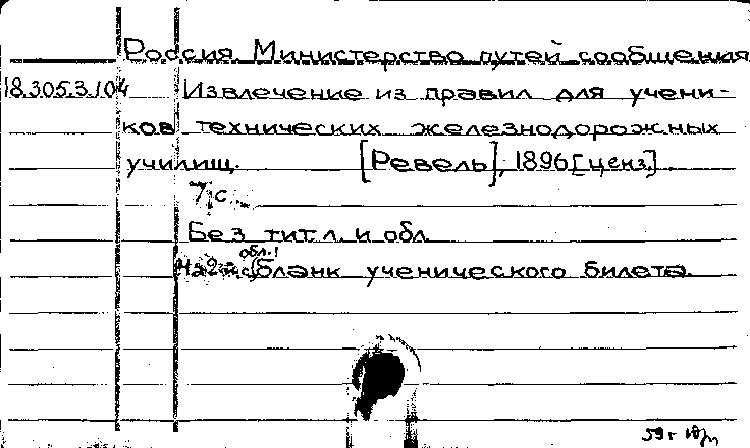 Россия. Министерство путей сообщения
18.305.3.104 Извлечение из правил для учени-
ков технических железнодорожных
училищ. [Ревель], 1896 [ценз.].
7 с.
Без тит. л. и обл.
обл.!
На 2й с. бланк ученического билета.